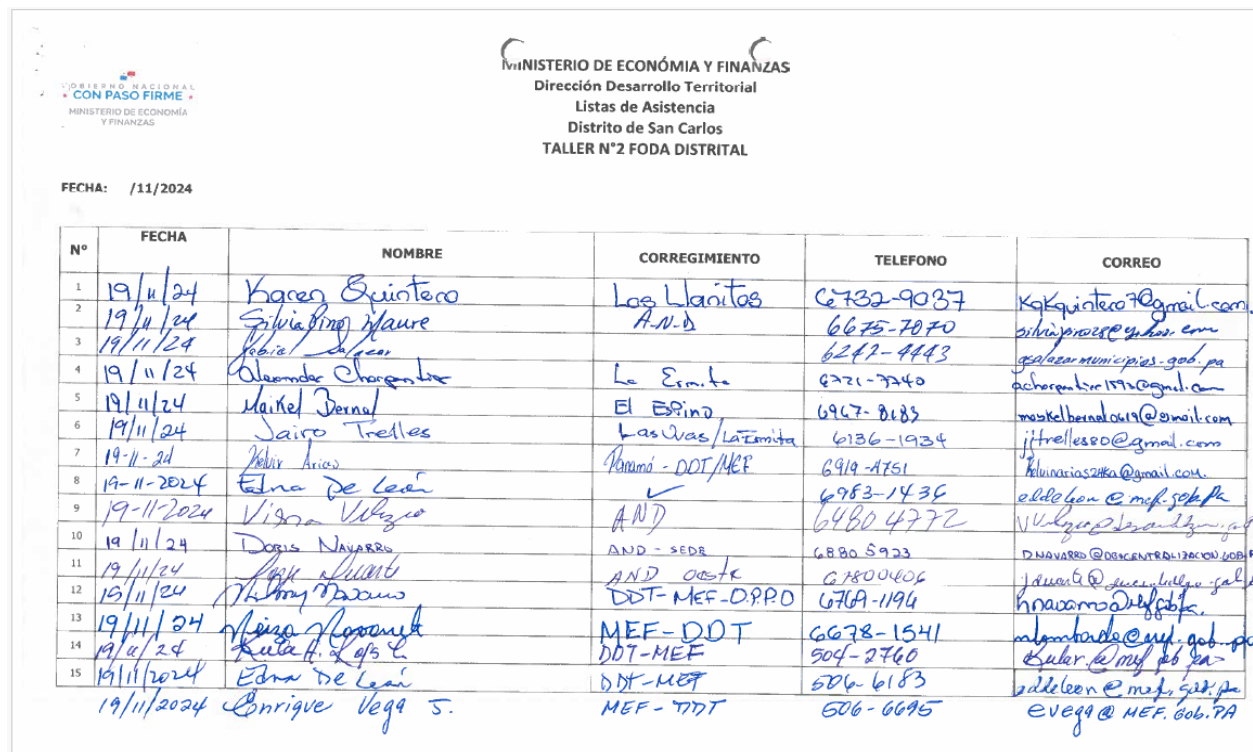 GOBIERNO NACIONAL
CON PASO FIRME
MINISTERIO DE ECONOMÍA
Y FINANZAS
MINISTERIO DE ECONÓMIA Y FINANZAS
Dirección Desarrollo Territorial
Listas de Asistencia
Distrito de San Carlos
TALLER N°2 FODA DISTRITAL
FECHA: /11/2024
N° FECHA NOMBRE CORREGIMIENTO TELEFONO CORREO
1 19/11/24 Karen Quintero Los Llanitos 6732-9037 KqKquintero7@gmail.com
2 19/11/24 Silvia Pino Maure A.N.D 6675-7070
3 19/11/24 6242-4443 gsalazarmunicipios.gob.pa
4 19/11/24 Alexander Charpentier La Ermita 6721-7740
5 19/11/24 Maikel Bernal El Espino 6967-8183 maykelbernal0619@gmail.com
6 19/11/24 Jairo Trelles Las Uvas/La Ermita 6136-1934 jjtrelles80@gmail.com
7 19-11-24 Kelvin Arias Panamá - DDT/MEF 6919-4751
8 19-11-2024 Edna De León ✓ 6983-1436 eddeleon@mef.gob.pa
9 19-11-2024 AND 64804772
10 19/11/24 Doris Navarro AND - SEDE 68805923 DNAVARRO@DESCENTRALIZACION.GOB.P
11 19/11/24 AND Oeste 67800406
12 19/11/24 DDT-MEF-O.P.P.D 6769-1194
13 19/11/24 MEF-DDT 6678-1541
14 19/11/24 DDT-MEF 504-2760
15 19/11/2024 Edna De León DDT-MEF 506-6183 eddeleon@mef.gob.pa
19/11/2024 Enrique Vega J. MEF-DDT 506-6695 evega@MEF.Gob.PA